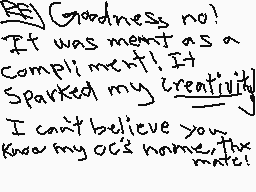 RE Goodness no!
It was ment as a
compliment! It
sparked my creativity
I can't believe you
know my oc's name, thx
mate!